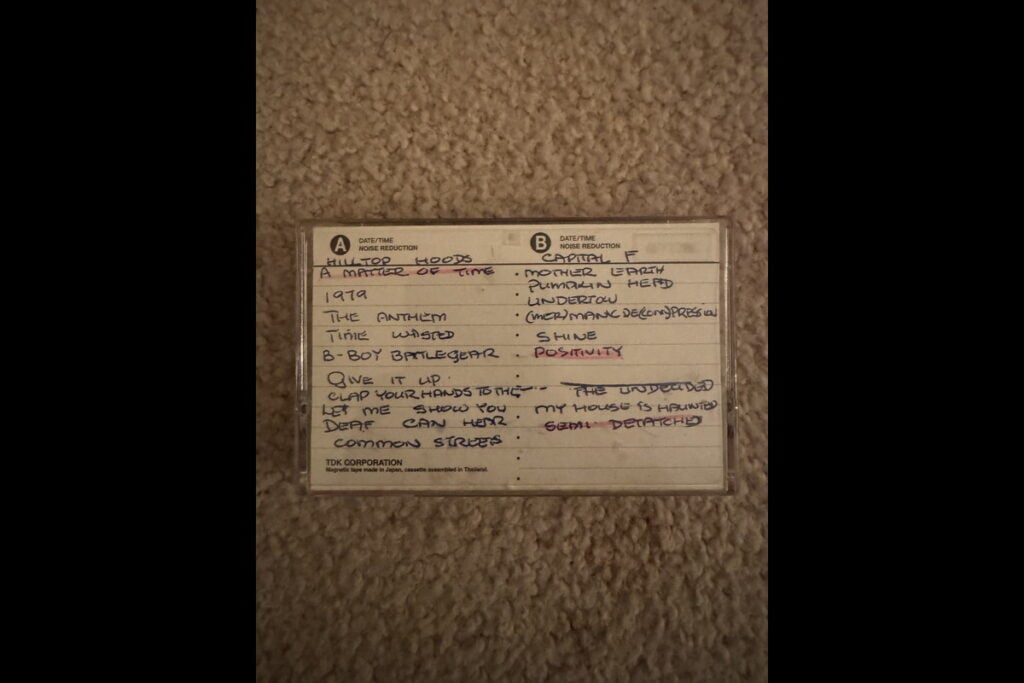 A DATE/TIME
NOISE REDUCTION
HILLTOP HOODS
A MATTER OF TIME
1979
THE ANTHEM
TIME WASTED
B-BOY BATTLEGEAR
GIVE IT UP
CLAP YOUR HANDS TO THE
LET ME SHOW YOU
DEAF CAN HEAR
COMMON STREETS
TDK CORPORATION
Magnetic tape made in Japan, cassette assembled in Thailand.
B DATE/TIME
NOISE REDUCTION
CAPITAL F
MOTHER EARTH
PUMPKIN HEAD
UNDERTOW
(MER)MANIC DE(COM)PRESSION
SHINE
POSITIVITY
THE UNDECIDED
MY HOUSE IS HAUNTED
SEMI DETATCHED